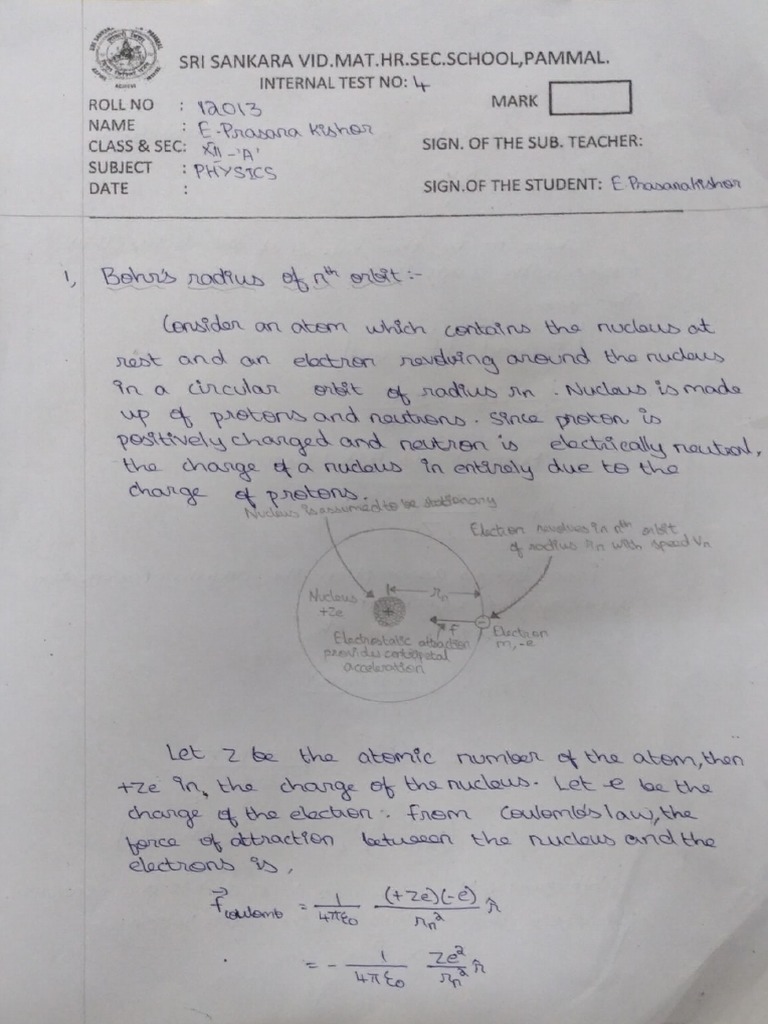 SRI SANKARA VID.MAT.HR.SEC.SCHOOL,PAMMAL.
INTERNAL TEST NO: 4
ROLL NO : 12013
MARK
NAME : E-Prasana Kishor
CLASS & SEC: XII-'A'
SIGN. OF THE SUB. TEACHER:
SUBJECT : PHYSICS
DATE :
SIGN.OF THE STUDENT: E Prasanakishor
1, Bohr's radius of nth orbit:-
Consider an atom which contains the nucleus at
rest and an electron revolving around the nucleus
in a circular orbit of radius rn. Nucleus is made
up of protons and neutrons. Since proton is
positively charged and neutron is electrically neutral,
the charge of a nucleus in entirely due to the
charge of protons.
Nucleus is assumed to be stationary
Electron revolves in nth orbit
of radius rn with speed Vn
Nucleus
+Ze
+
rn
F
-
Electron
m,-e
Electrostatic attraction
provides centripetal
acceleration
Let Z be the atomic number of the atom, then
+Ze in, the charge of the nucleus. Let -e be the
charge of the electron. From Coulomb's law, the
force of attraction between the nucleus and the
electrons is,
F⃗coulomb = 1/4πε0 (+Ze)(-e)/rn² r̂
= - 1/4πε0 Ze²/rn² r̂